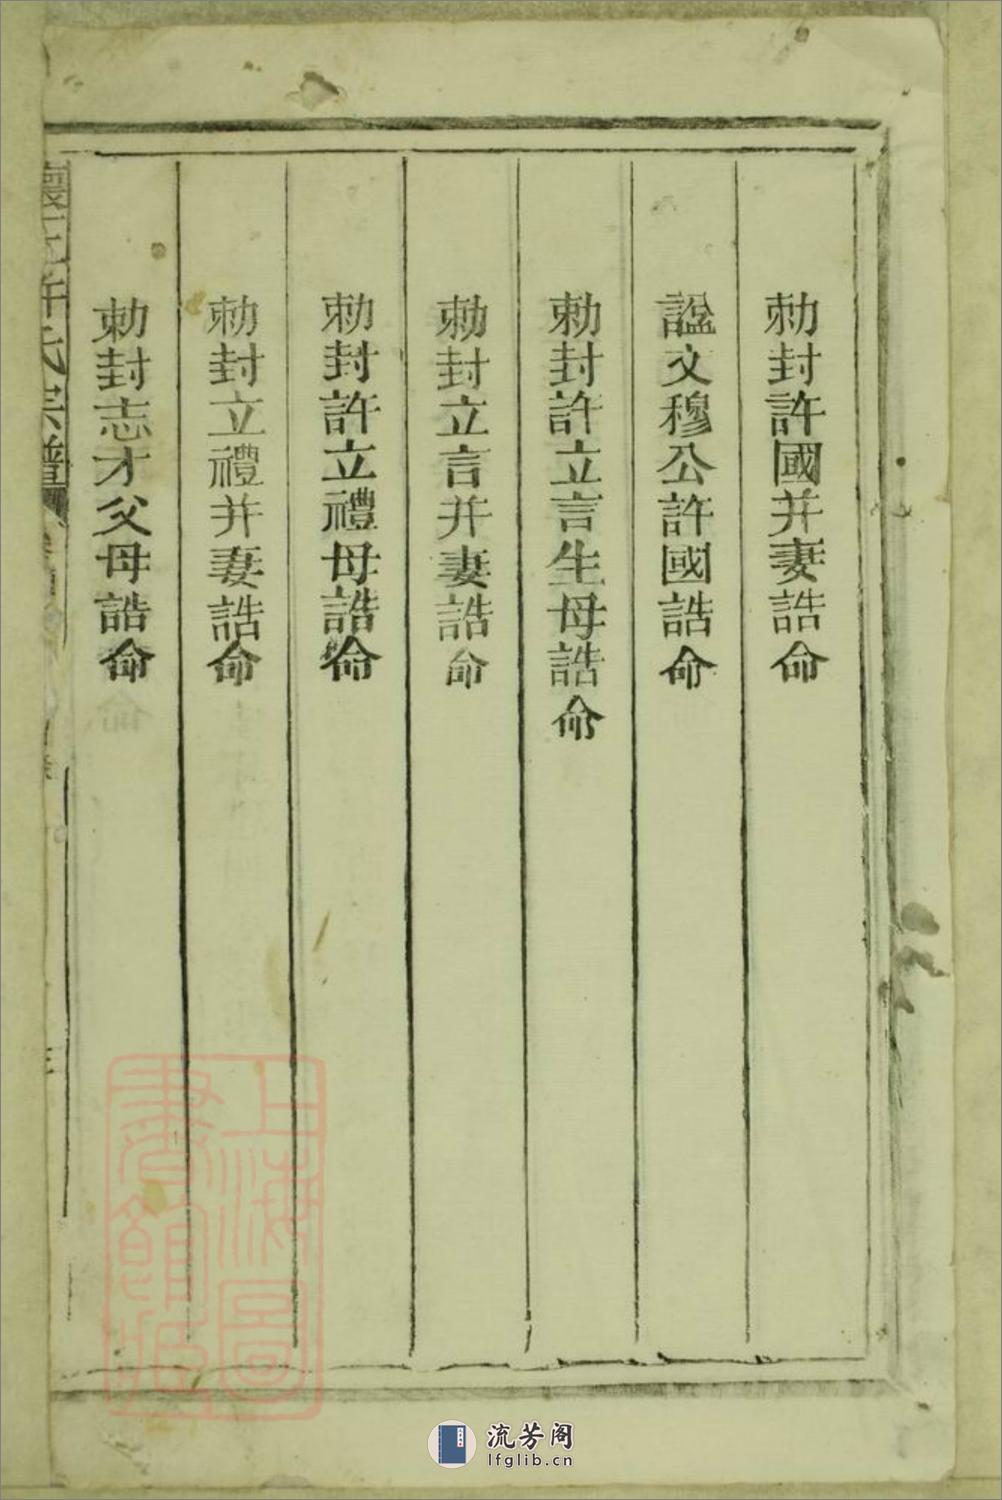 勅封許國并妻誥命
諡文穆公許國誥命
勅封許立言生母誥命
勅封立言并妻誥命
勅封許立禮母誥命
勅封立禮并妻誥命
勅封志才父母誥命
許氏宗譜
上海圖書館藏
流芳阁
lfglib.cn